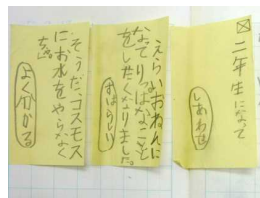 二年生になって
しあわせ
えらいおねんに
なってりっぱなことを
をしたくなりました。
すばらしい
そうだ、コスモス
にお水をやらなく
ちゃ。
よく分かる